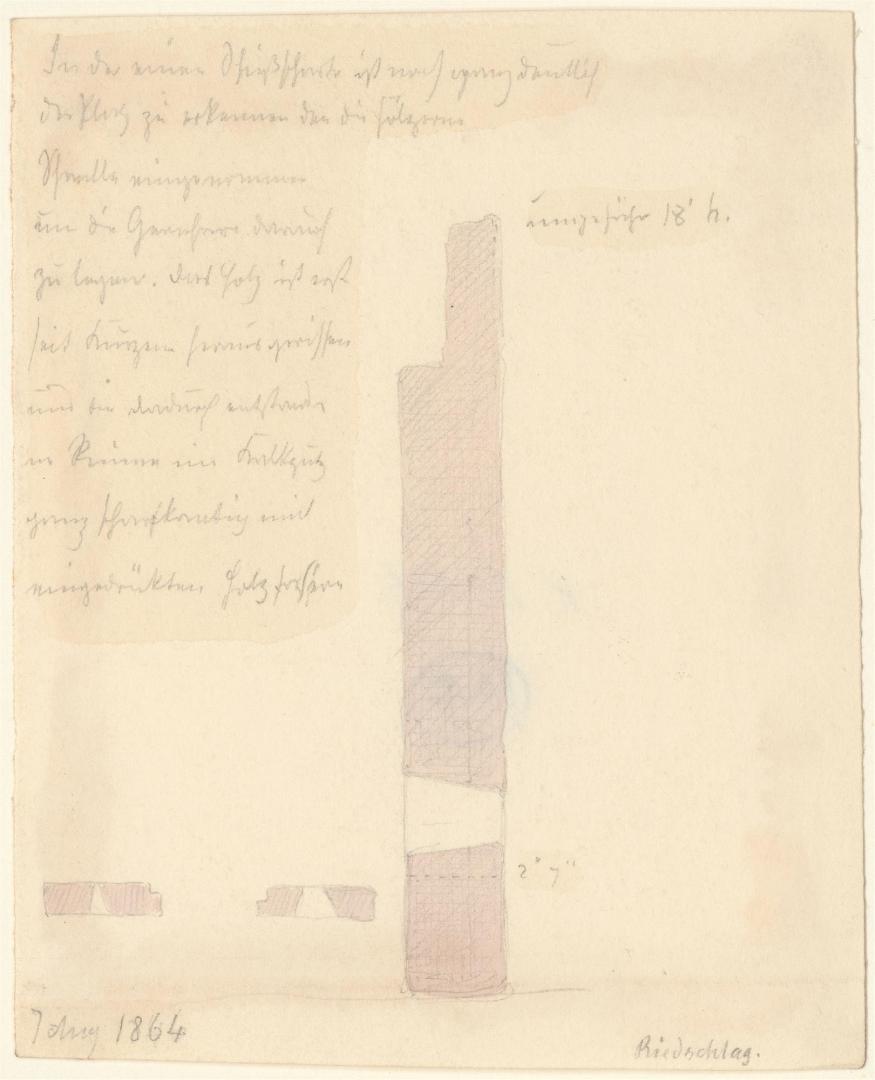 In der einen Schießscharte ist noch ganz deutlich
der Platz zu erkennen den die hölzerne
Schwelle eingenommen
um die Gewehre darauf
zu legen. das Holz ist erst
seit Kurzem herausgerissen
und die dadurch entstande
ne Rinne im Kalkputz
ganz scharfkantig mit
eingedrükten Holzfasern
ungefähr 18' h.
2' 7"
7 Aug 1864
Riedschlag.